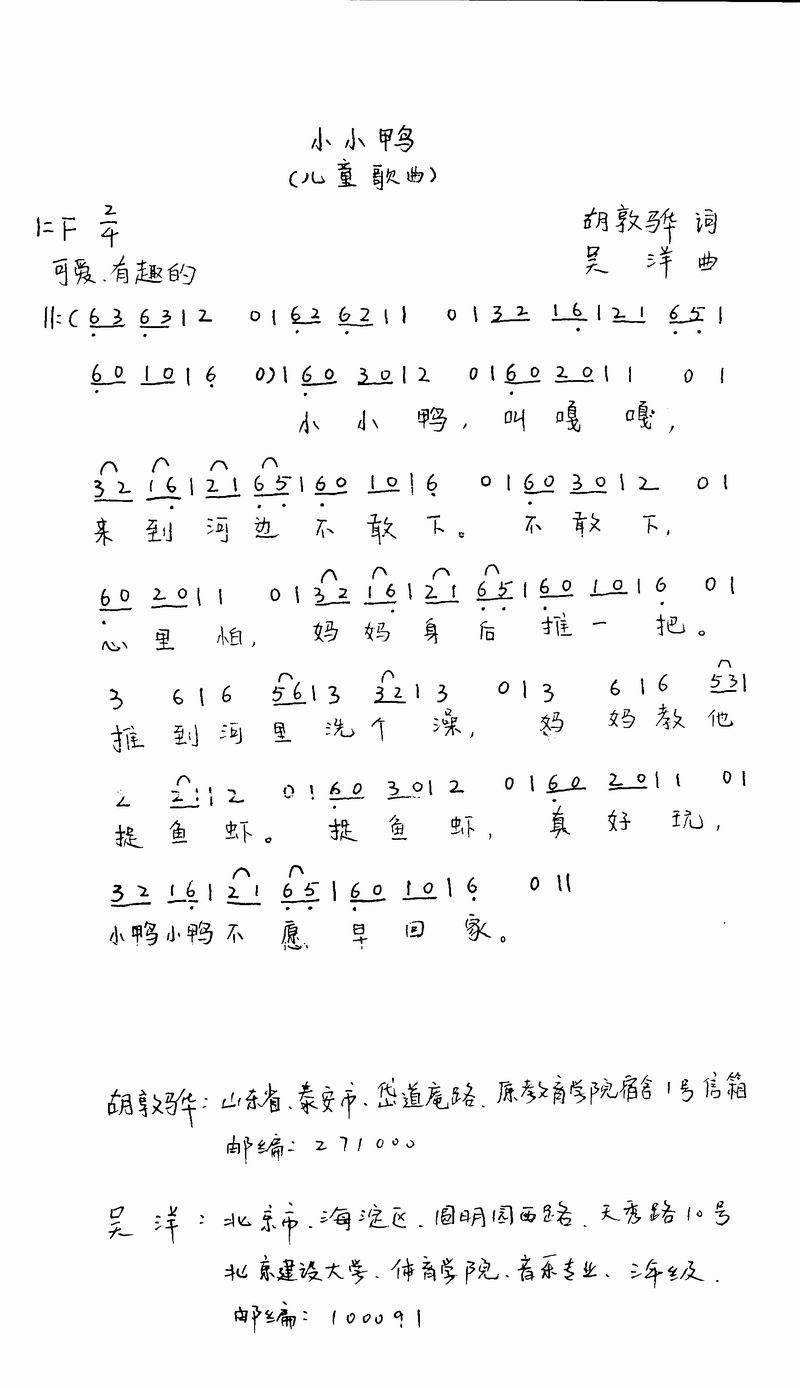 小小鸭
(儿童歌曲)
1=F 2/4 胡敦骅 词
可爱、有趣的 吴 洋 曲
||:( 63 63 | 2 0 | 62 62 | 1 0 | 32 16 | 21 65 |
60 10 | 6 0) | 60 30 | 2 0 | 60 20 | 1 0 |
小 小 鸭, 叫 嘎 嘎,
32 16 | 21 65 | 60 10 | 6 0 | 60 30 | 2 0 |
来 到 河 边 不 敢 下。 不 敢 下,
60 20 | 1 0 | 32 16 | 21 65 | 60 10 | 6 0 |
心 里 怕, 妈 妈 身 后 推 一 把。
3 6 | 6 56 | 3 32 | 3 0 | 3 6 | 6 53 |
推 到 河 里 洗 个 澡, 妈 妈 教 他
2 21 | 2 0 | 60 30 | 2 0 | 60 20 | 1 0 |
捉 鱼 虾。 捉 鱼 虾, 真 好 玩,
32 16 | 21 65 | 60 10 | 6 0 ||
小鸭小鸭 不 愿 早 回 家。
胡敦骅: 山东省、泰安市、岱道庵路、原教育学院宿舍1号信箱
邮编: 271000
吴 洋: 北京市、海淀区、圆明园西路、天秀路10号
北京建设大学、体育学院、音乐专业、三年级.
邮编: 100091